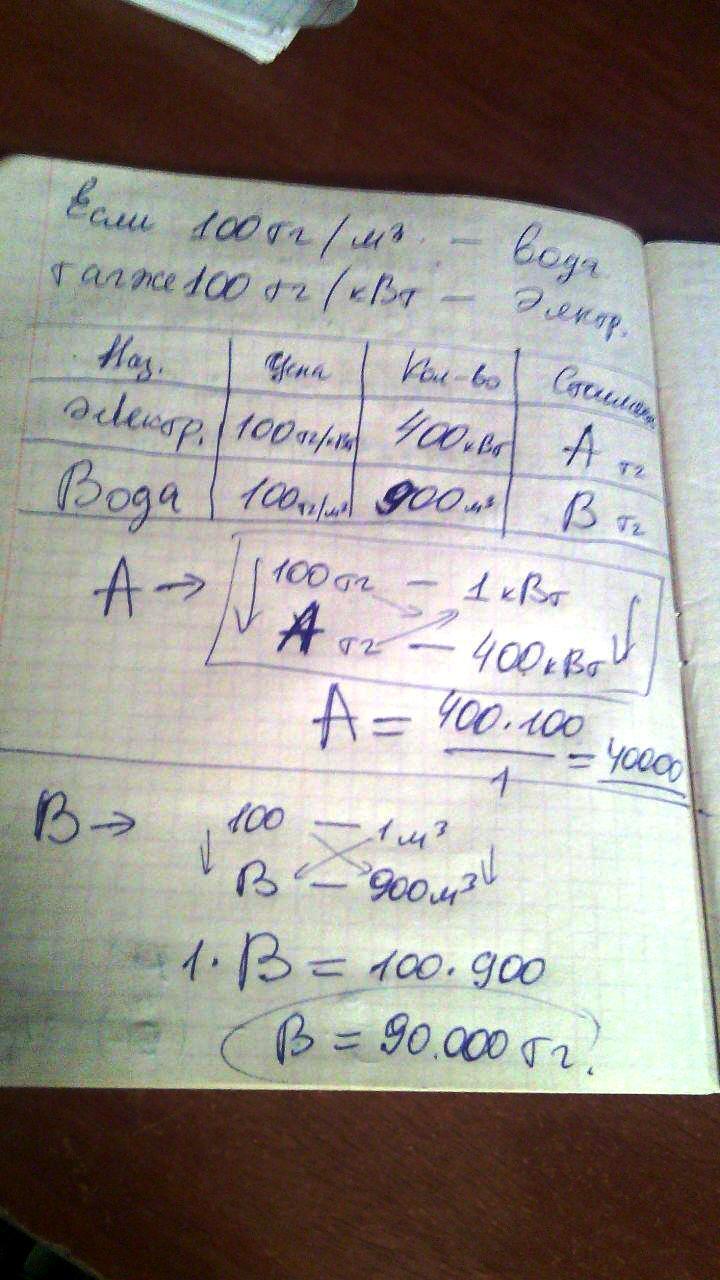 Если 100 тг/м³. — вода
также 100 тг/кВт — Электр.
Наз. Цена Кол-во
Электр. 100 тг/кВт 400 кВт А тг
Вода 100 тг/м³ 900 м³ В тг
А → 100 тг — 1 кВт
А тг — 400 кВт
А = 400·100 / 1 = 40000
В → 100 — 1 м³
В — 900 м³
1·В = 100·900
В = 90.000 тг.